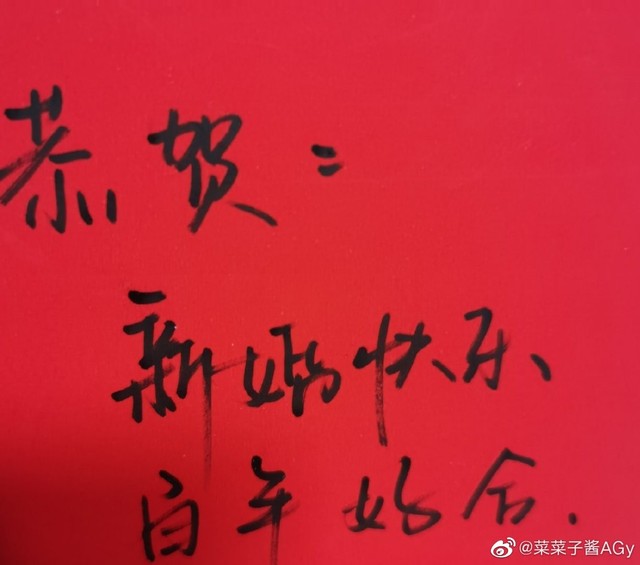 恭贺:
新婚快乐
百年好合.
@菜菜子酱AGy